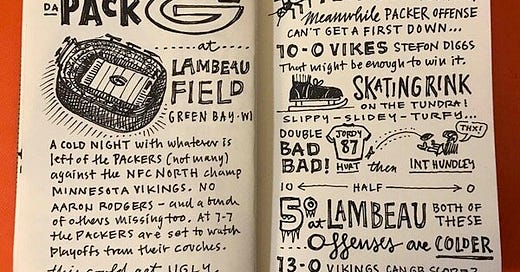 DA PACK G
at
LAMBEAU
FIELD
GREEN BAY • WI
A COLD NIGHT with whatever is
left of the PACKERS (not many)
against the NFC NORTH champ
MINNESOTA VIKINGS. NO
AARON RODGERS – and a bunch
of others missing too. At 7-7
the PACKERS are set to watch
Playoffs from their couches.
this could get UGLY.
Meanwhile PACKER OFFENSE
CAN'T GET A FIRST DOWN...
10-0 VIKES STEFON DIGGS
That might be enough to win it.
SKATING RINK
ON THE TUNDRA!
SLIPPY – SLIDEY – TURFY...
DOUBLE
BAD
BAD!
JORDY
87
HURT
then
THX!
INT HUNDLEY
10 HALF 0
5° at LAMBEAU
BOTH OF
THESE
Offenses are COLDER
13-0 VIKINGS